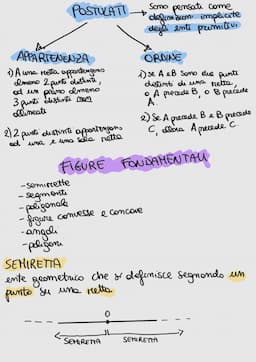 POSTULATI → Sono pensati come
definizioni implicite
degli enti primitivi
APPARTENENZA
1) A una retta appartengono
almeno 2 punti distinti,
ad un piano almeno
3 punti distinti non
allineati
2) 2 punti distinti appartengono
ad una e una sola retta
ORDINE
1) Se A e B sono due punti
distinti di una retta,
o A precede B, o B precede
A.
2) Se A precede B e B precede
C, allora A precede C.
FIGURE FONDAMENTALI
- semirette
- segmenti
- poligonale
- figure convesse e concave
- angoli
- poligoni
SEMIRETTA
ente geometrico che si definisce segnando un
punto su una retta
O
SEMIRETTA SEMIRETTA